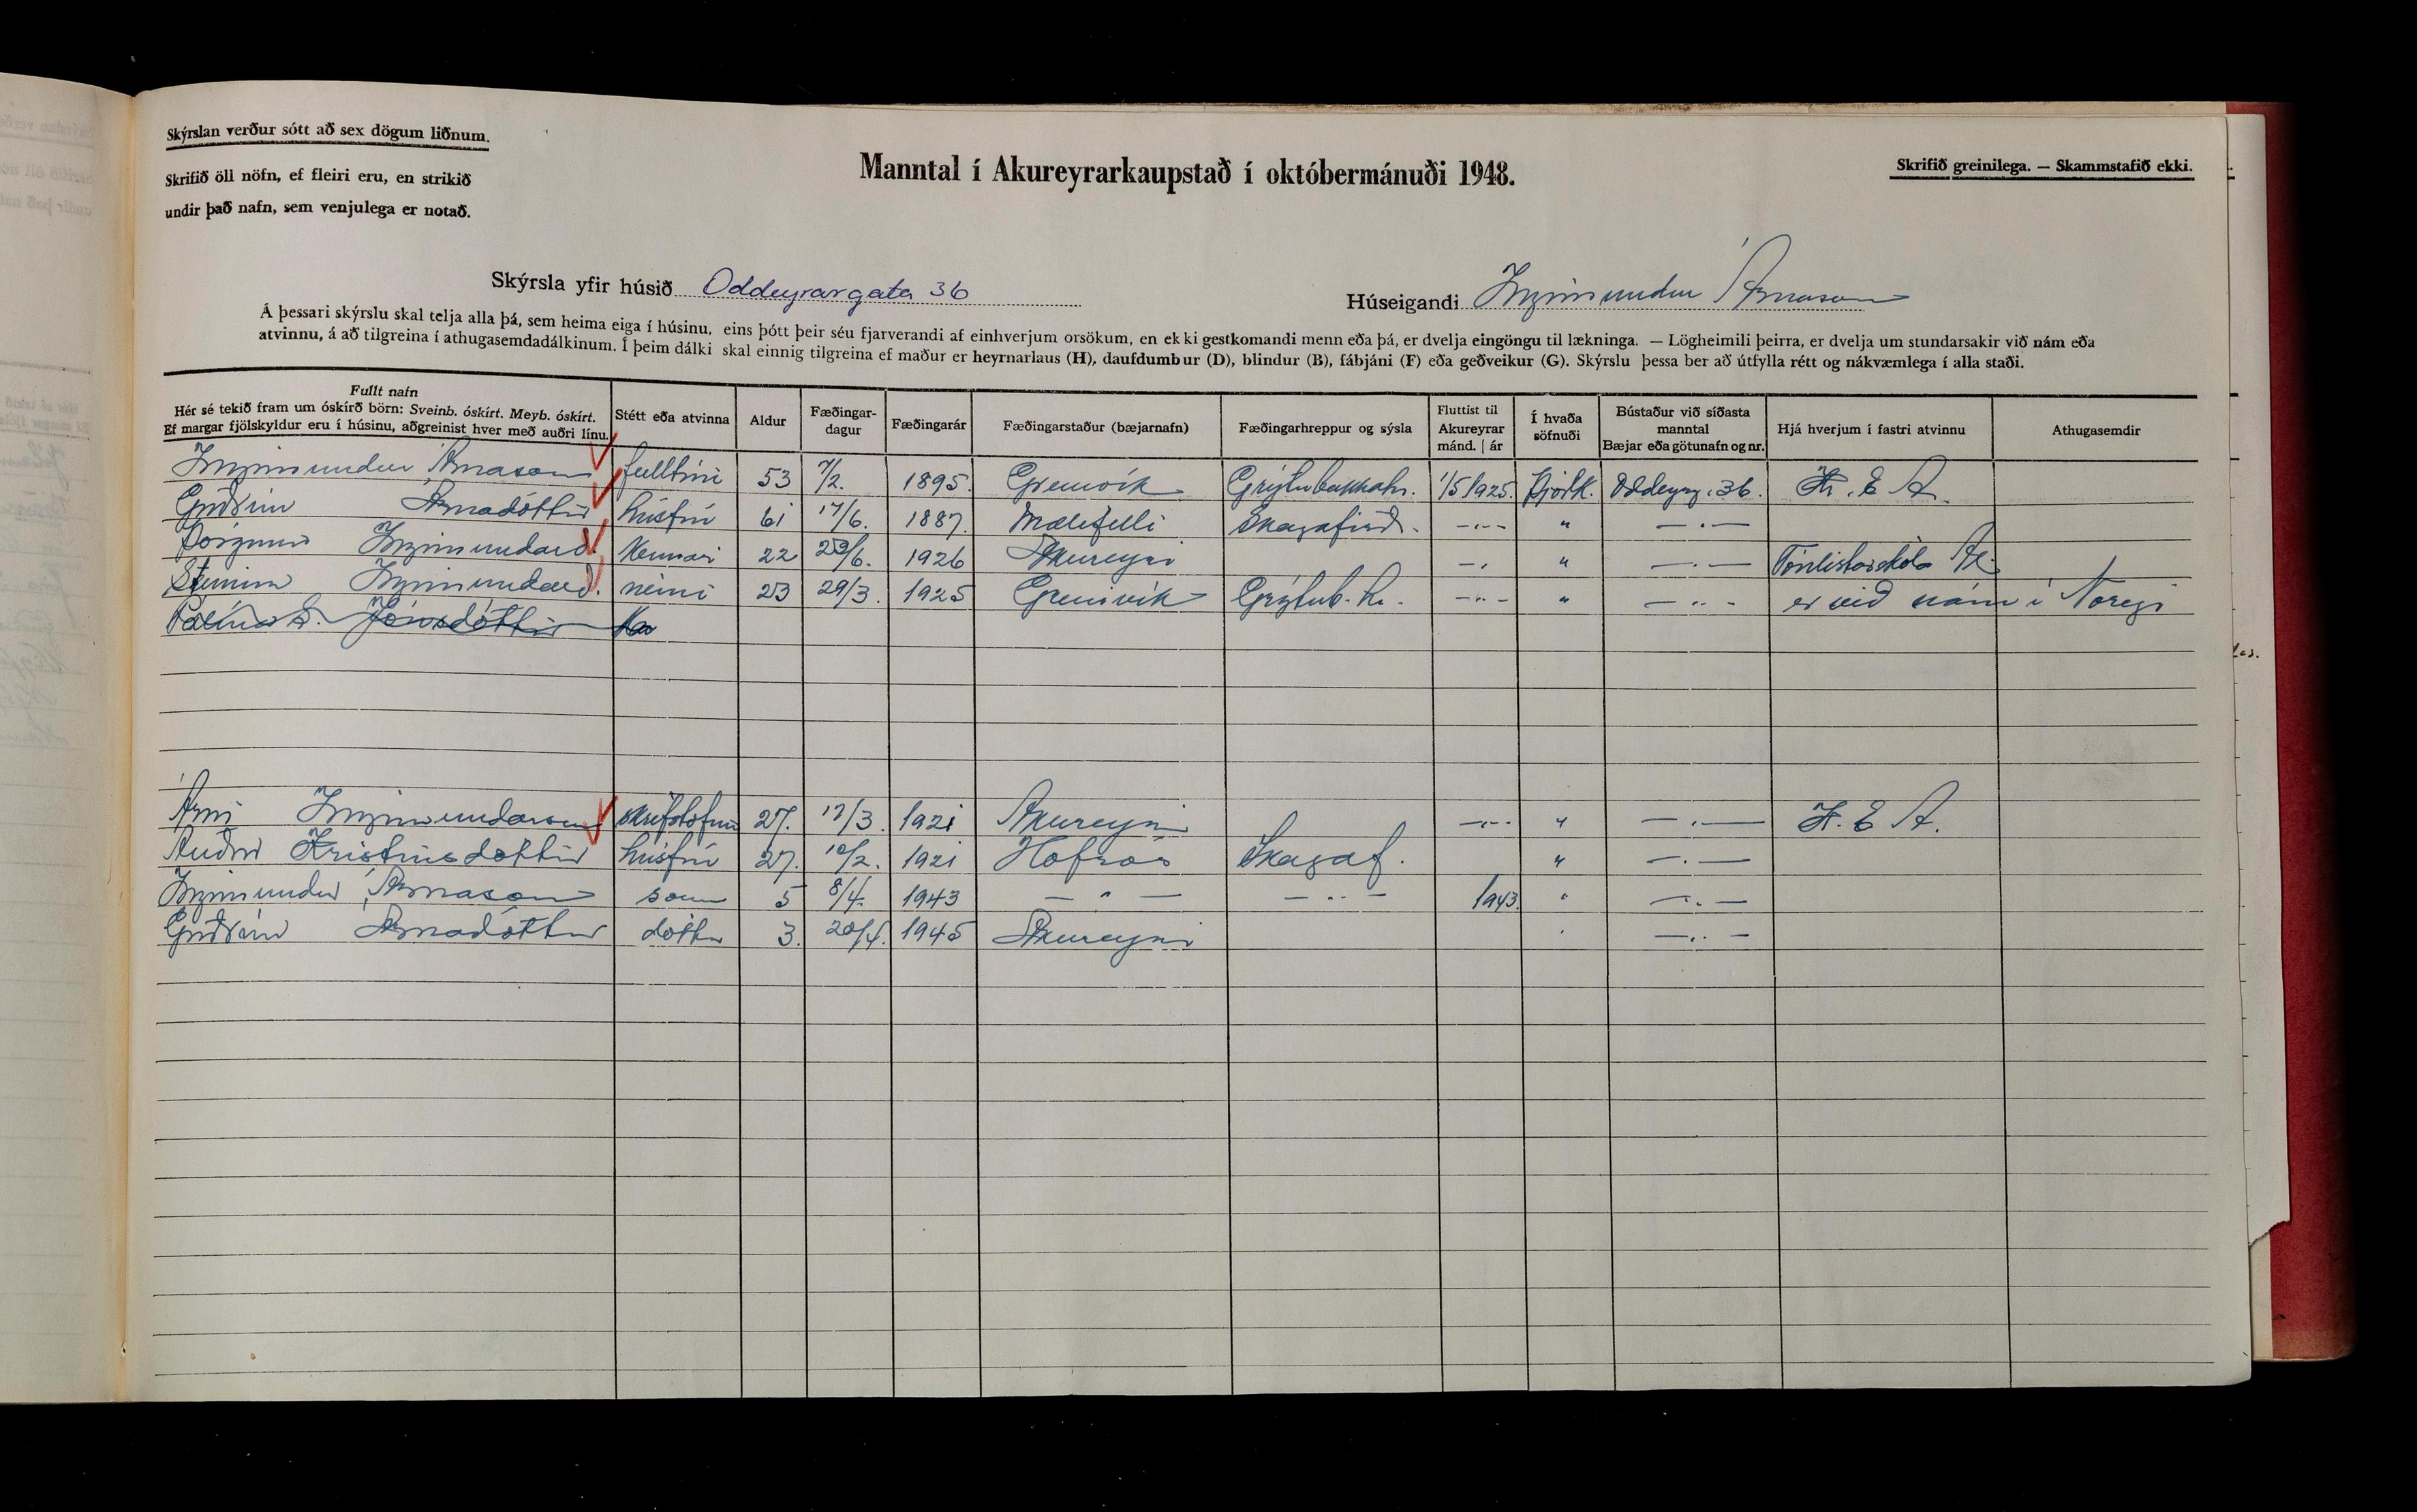 Skýrslan verður sótt að sex dögum liðnum.
Skrifið öll nöfn, ef fleiri eru, en strikið
undir það nafn, sem venjulega er notað.
Manntal í Akureyrarkaupstað í októbermánuði 1948.
Skrifið greinilega. — Skammstafið ekki.
Skýrsla yfir húsið Oddeyrargata 36
Húseigandi Ingimundur Árnason
Á þessari skýrslu skal telja alla þá, sem heima eiga í húsinu, eins þótt þeir séu fjarverandi af einhverjum orsökum, en ekki gestkomandi menn eða þá, er dvelja eingöngu til lækninga. — Lögheimili þeirra, er dvelja um stundarsakir við nám eða
atvinnu, á að tilgreina í athugasemdadálkinum. Í þeim dálki skal einnig tilgreina ef maður er heyrnarlaus (H), daufdumbur (D), blindur (B), fábjáni (F) eða geðveikur (G). Skýrslu þessa ber að útfylla rétt og nákvæmlega í alla staði.
Fullt nafn
Hér sé tekið fram um óskírð börn: Sveinb. óskírt. Meyb. óskírt.
Ef margar fjölskyldur eru í húsinu, aðgreinist hver með auðri línu.
Stétt eða atvinna
Aldur
Fæðingar-
dagur
Fæðingarár
Fæðingarstaður (bæjarnafn)
Fæðingarhreppur og sýsla
Fluttist til
Akureyrar
mánd. | ár
Í hvaða
söfnuði
Bústaður við síðasta
manntal
Bæjar eða götunafn og nr.
Hjá hverjum í fastri atvinnu
Athugasemdir
Ingimundur Árnason fulltrúi 53 7/2. 1895. Grenivík Grýtubakkahr. 1/5 1925. Þjóðk. Oddeyrg. 36. K. E. A.
Guðrún Árnadóttir húsfrú 61 17/6. 1887. Mælifelli Skagafirði. —..— " —.—
Þórgunnur Ingimundard. Kennari 22 29/6. 1926 Akureyri —. " —.— Tónlistarskóla Ak.
Steinunn Ingimundard. nemi 23 29/3. 1925 Grenivík Grýtub.hr. —..— " —..— er við nám í Noregi
Pálína S. Jónsdóttir
Árni Ingimundarson skrifstofum 27. 17/3. 1921 Akureyri —..— " —.— K. E. A.
Auður Kristinsdóttir húsfrú 27. 10/2. 1921 Hofsós Skagaf. " —.—
Ingimundur Árnason sonur 5 8/4. 1943 — " — —..— 1943. " —..—
Guðrún Árnadóttir dóttir 3. 20/4. 1945 Akureyri —..—